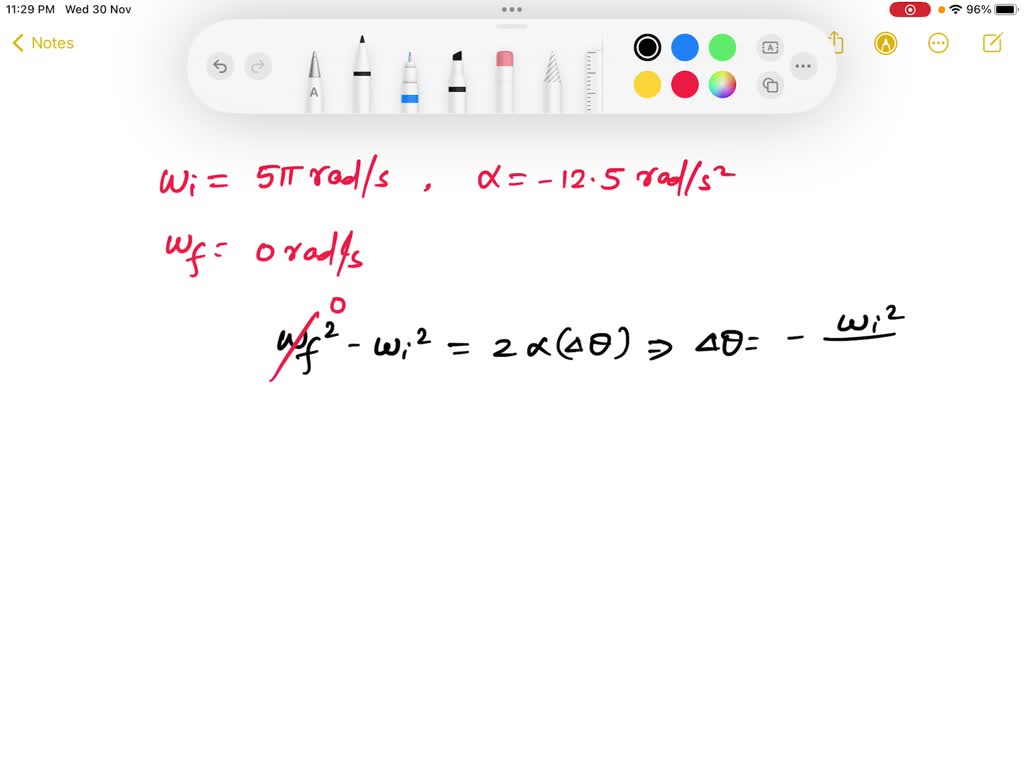 11:29 PM Wed 30 Nov 96%
Notes
A A
ωi = 5π rad/s , α = -12.5 rad/s²
ωf = 0 rad/s
0
ωf² - ωi² = 2α(Δθ) ⇒ Δθ = - ωi²